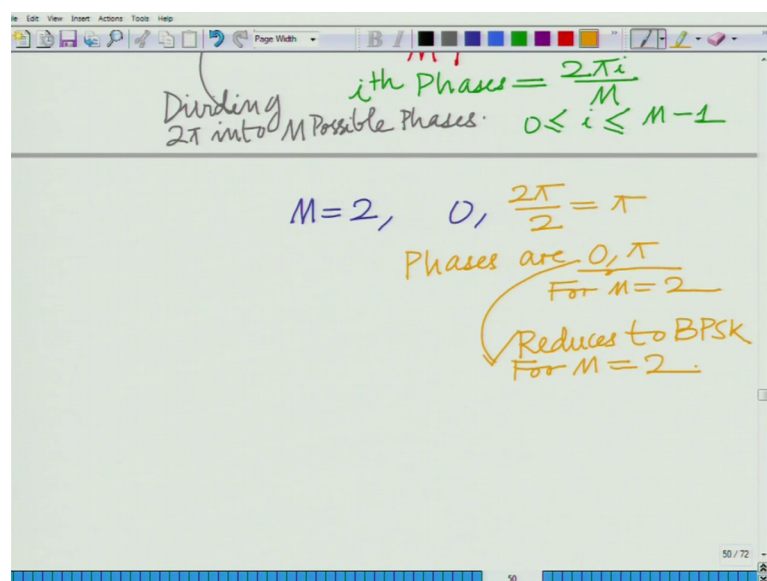 Edit View Insert Actions Tools Help
Page Width
B I
ith Phases = 2πi/M
Dividing
2π into M Possible Phases. 0 ≤ i ≤ M-1
M=2, 0, 2π/2 = π
Phases are 0, π
For M=2
Reduces to BPSK
For M=2.
50 / 72
50